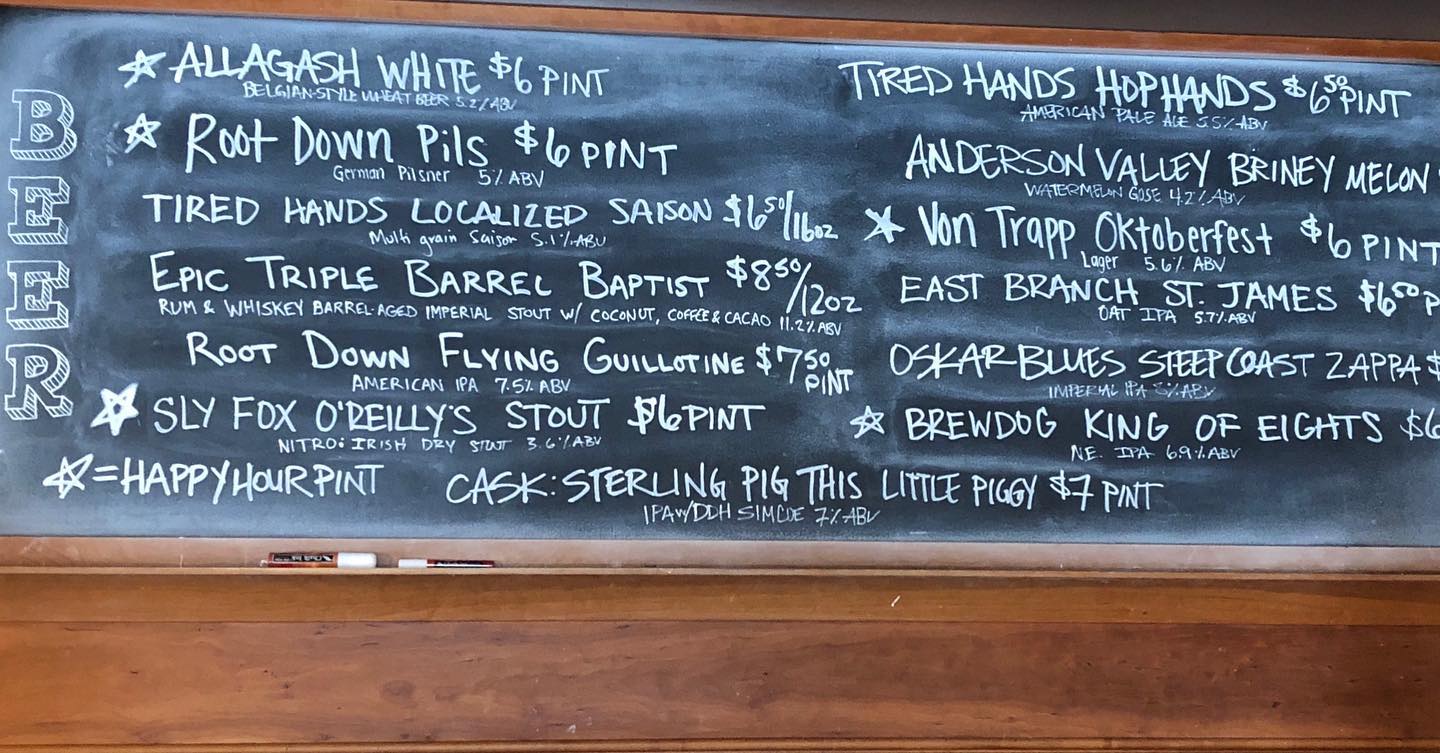 BEER
☆ ALLAGASH WHITE $6 PINT
BELGIAN-STYLE WHEAT BEER 5.2% ABV
☆ Root Down Pils $6 PINT
German Pilsner 5% ABV
TIRED HANDS LOCALIZED SAISON $6.50/16oz
Multi grain Saison 5.1% ABV
EPIC TRIPLE BARREL BAPTIST $8.50/12oz
RUM & WHISKEY BARREL-AGED IMPERIAL STOUT W/ COCONUT, COFFEE & CACAO 11.2% ABV
ROOT DOWN FLYING GUILLOTINE $7.50 PINT
AMERICAN IPA 7.5% ABV
☆ SLY FOX O'REILLY'S STOUT $6 PINT
NITRO: IRISH DRY STOUT 3.6% ABV
TIRED HANDS HOPHANDS $6.50 PINT
AMERICAN PALE ALE 5.5% ABV
ANDERSON VALLEY BRINEY MELON
WATERMELON GOSE 4.2% ABV
☆ Von Trapp Oktoberfest $6 PINT
Lager 5.6% ABV
EAST BRANCH ST. JAMES $6.50 P
OAT IPA 5.7% ABV
OSKAR BLUES STEEP COAST ZAPPA $
IMPERIAL IPA ABV
☆ BREWDOG KING OF EIGHTS $6
N.E. IPA 6.9% ABV
☆ = HAPPY HOUR PINT
CASK: STERLING PIG THIS LITTLE PIGGY $7 PINT
IPA W/ DDH SIMCOE 7% ABV